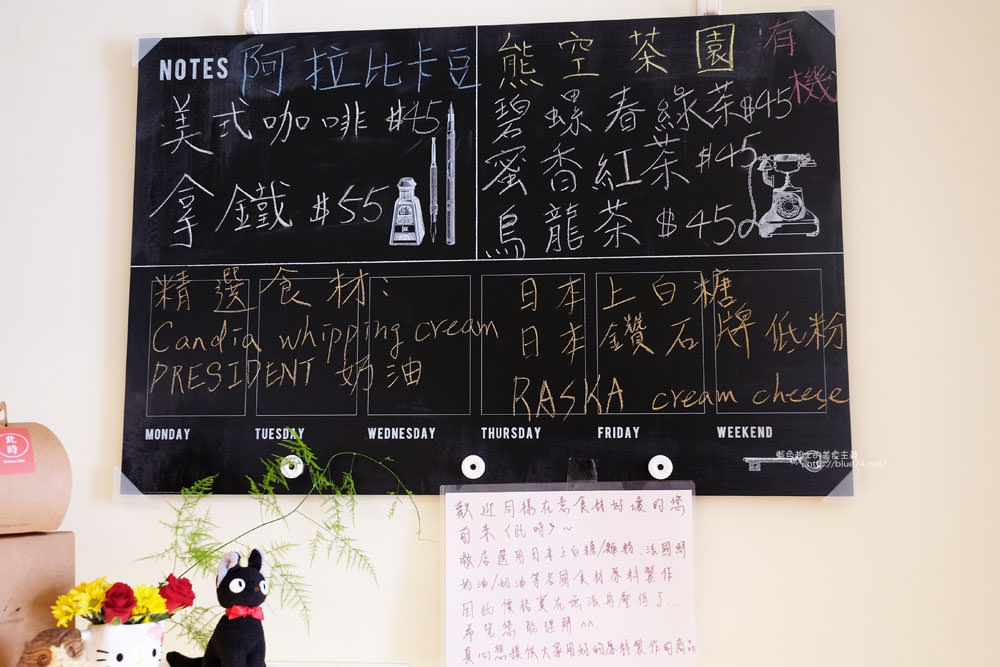 NOTES 阿拉比卡豆
美式咖啡 $45
拿鐵 $55
熊空茶園 有機
碧螺春綠茶$45
蜜香紅茶 $45
烏龍茶 $45
精選食材:
Candia whipping cream
PRESIDENT 奶油
日本上白糖
日本鑽石牌低粉
RASKA cream cheese
MONDAY TUESDAY WEDNESDAY THURSDAY FRIDAY WEEKEND
藍色起士的美食主義
http://blue74.net/
此時
歡迎同樣在意食材好壞的您
前來《此時》~
敝店選用日本上白糖/麵粉、法國鮮
奶油/奶油等各國食材原料製作
因此價格實在無法再壓低了...
希望您能理解^^
真心想提供大家用好的原料製作的商品